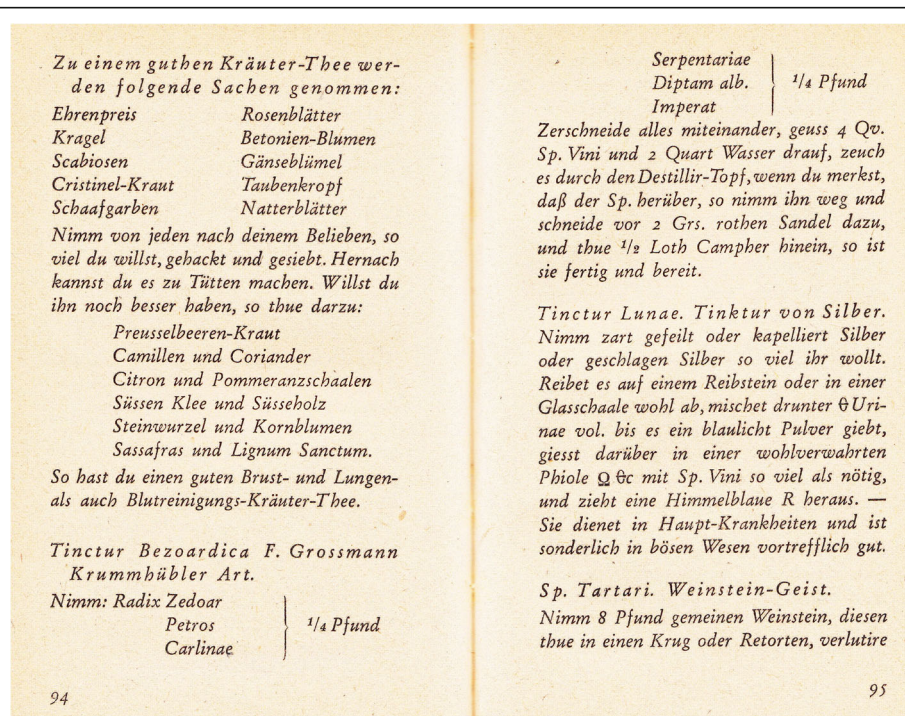 Zu einem guthen Kräuter-Thee wer-
den folgende Sachen genommen:
Ehrenpreis Rosenblätter
Kragel Betonien-Blumen
Scabiosen Gänseblümel
Cristinel-Kraut Taubenkropf
Schaafgarben Natterblätter
Nimm von jeden nach deinem Belieben, so
viel du willst, gehackt und gesiebt. Hernach
kannst du es zu Tütten machen. Willst du
ihn noch besser haben, so thue darzu:
Preusselbeeren-Kraut
Camillen und Coriander
Citron und Pommeranzschaalen
Süssen Klee und Süsseholz
Steinwurzel und Kornblumen
Sassafras und Lignum Sanctum.
So hast du einen guten Brust- und Lungen-
als auch Blutreinigungs-Kräuter-Thee.
Tinctur Bezoardica F. Grossmann
Krummhübler Art.
Nimm: Radix Zedoar
Petros 1/4 Pfund
Carlinae
94
Serpentariae
Diptam alb. 1/4 Pfund
Imperat
Zerschneide alles miteinander, geuss 4 Qv.
Sp. Vini und 2 Quart Wasser drauf, zeuch
es durch den Destillir-Topf, wenn du merkst,
daß der Sp. herüber, so nimm ihn weg und
schneide vor 2 Grs. rothen Sandel dazu,
und thue 1/2 Loth Campher hinein, so ist
sie fertig und bereit.
Tinctur Lunae. Tinktur von Silber.
Nimm zart gefeilt oder kapelliert Silber
oder geschlagen Silber so viel ihr wollt.
Reibet es auf einem Reibstein oder in einer
Glasschaale wohl ab, mischet drunter Uri-
nae vol. bis es ein blaulicht Pulver giebt,
giesst darüber in einer wohlverwahrten
Phiole Q &c mit Sp. Vini so viel als nötig,
und zieht eine Himmelblaue R heraus. —
Sie dienet in Haupt-Krankheiten und ist
sonderlich in bösen Wesen vortrefflich gut.
Sp. Tartari. Weinstein-Geist.
Nimm 8 Pfund gemeinen Weinstein, diesen
thue in einen Krug oder Retorten, verlutire
95